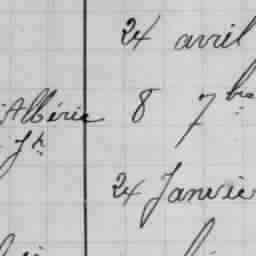 24 avril
Albéric 8 7bre
Jh
24 Janvie